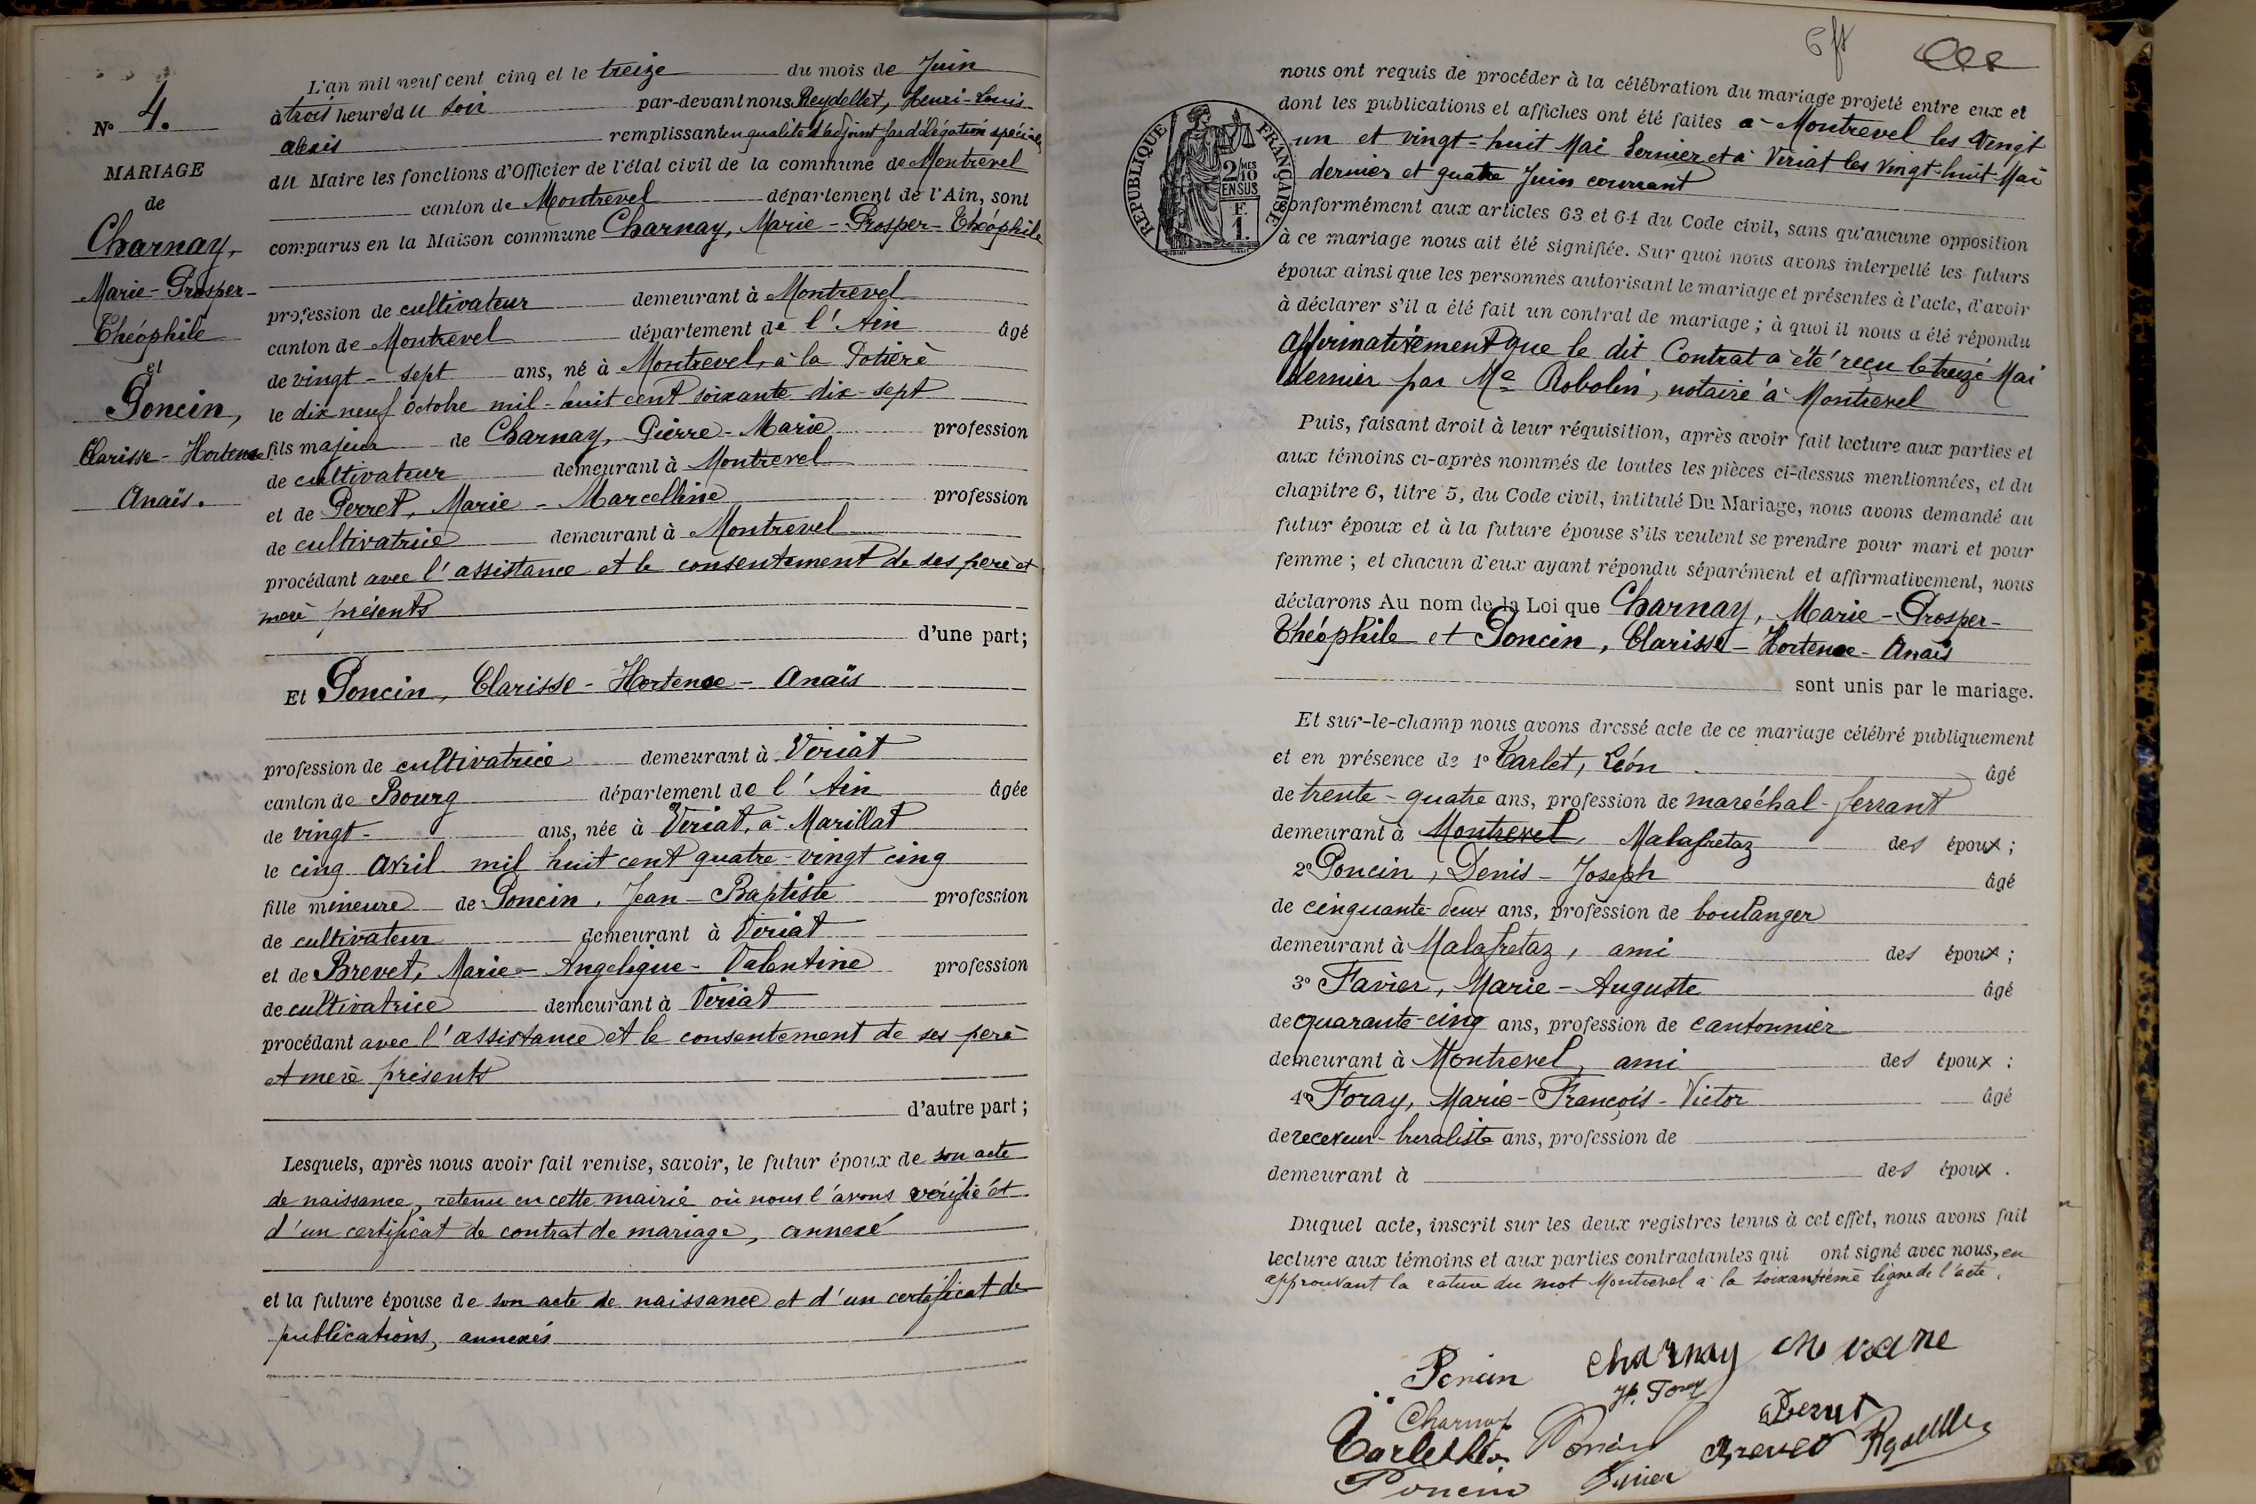 N° 4.
MARIAGE
de
Charnay,
Marie-Prosper-
Théophile
et
Poncin,
Clarisse-Hortense
Anaïs.
L'an mil neuf cent cinq et le treize du mois de Juin
à trois heures du soir par-devant nous Reydellet, Henri-Louis-
alexis remplissant en qualité d'adjoint par délégation spéciale
du Maire les fonctions d'Officier de l'état civil de la commune de Montrevel
canton de Montrevel département de l'Ain, sont
comparus en la Maison commune Charnay, Marie-Prosper-Théophile
profession de cultivateur demeurant à Montrevel
canton de Montrevel département de l'Ain âgé
de vingt-sept ans, né à Montrevel, à la Potière
le dix neuf octobre mil-huit cent soixante dix-sept
fils majeur de Charnay, Pierre-Marie profession
de cultivateur demeurant à Montrevel
et de Perret, Marie-Marcelline profession
de cultivatrice demeurant à Montrevel
procédant avec l'assistance et le consentement de ses père et
mère présents
d'une part;
Et Poncin, Clarisse-Hortense-Anaïs
profession de cultivatrice demeurant à Viriat
canton de Bourg département de l'Ain âgée
de vingt- ans, née à Viriat, à Marillat
le cinq avril mil huit cent quatre-vingt cinq
fille mineure de Poncin, Jean-Baptiste profession
de cultivateur demeurant à Viriat
et de Brevet, Marie-Angelique-Valentine profession
de cultivatrice demeurant à Viriat
procédant avec l'assistance et le consentement de ses père
et mère présents
d'autre part;
Lesquels, après nous avoir fait remise, savoir, le futur époux de son acte
de naissance, retenu en cette mairie où nous l'avons vérifié et
d'un certificat de contrat de mariage, annexé
et la future épouse de son acte de naissance et d'un certificat de
publications, annexés
RÉPUBLIQUE FRANÇAISE
2 MES
10
EN SUS
F.
1.
nous ont requis de procéder à la célébration du mariage projeté entre eux et
dont les publications et affiches ont été faites à Montrevel les vingt
un et vingt-huit Mai dernier et à Viriat les vingt-huit Mai
dernier et quatre Juin courant
conformément aux articles 63 et 64 du Code civil, sans qu'aucune opposition
à ce mariage nous ait été signifiée. Sur quoi nous avons interpellé les futurs
époux ainsi que les personnes autorisant le mariage et présentes à l'acte, d'avoir
à déclarer s'il a été fait un contrat de mariage; à quoi il nous a été répondu
affirmativement que le dit Contrat a été reçu le treize Mai
dernier par Me Robolin, notaire à Montrevel
Puis, faisant droit à leur réquisition, après avoir fait lecture aux parties et
aux témoins ci-après nommés de toutes les pièces ci-dessus mentionnées, et du
chapitre 6, titre 5, du Code civil, intitulé Du Mariage, nous avons demandé au
futur époux et à la future épouse s'ils veulent se prendre pour mari et pour
femme; et chacun d'eux ayant répondu séparément et affirmativement, nous
déclarons Au nom de la Loi que Charnay, Marie-Prosper-
Théophile et Poncin, Clarisse-Hortense-Anaïs
sont unis par le mariage.
Et sur-le-champ nous avons dressé acte de ce mariage célébré publiquement
et en présence de 1° Carlet, Léon âgé
de trente-quatre ans, profession de maréchal-ferrant
demeurant à Montrevel, Malafretaz des époux;
2° Poncin, Denis-Joseph âgé
de cinquante-deux ans, profession de boulanger
demeurant à Malafretaz, ami des époux;
3° Favier, Marie-Auguste âgé
de quarante-cinq ans, profession de cantonnier
demeurant à Montrevel, ami des époux:
4° Foray, Marie-François-Victor âgé
de receveur-buraliste ans, profession de
demeurant à des époux.
Duquel acte, inscrit sur les deux registres tenus à cet effet, nous avons fait
lecture aux témoins et aux parties contractantes qui ont signé avec nous, en
approuvant la rature du mot Montrevel à la soixantième ligne de l'acte.
Poncin Charnay
Foray
Charnay Perret
Carlet Léon Poncin Brevet
Poncin Favier